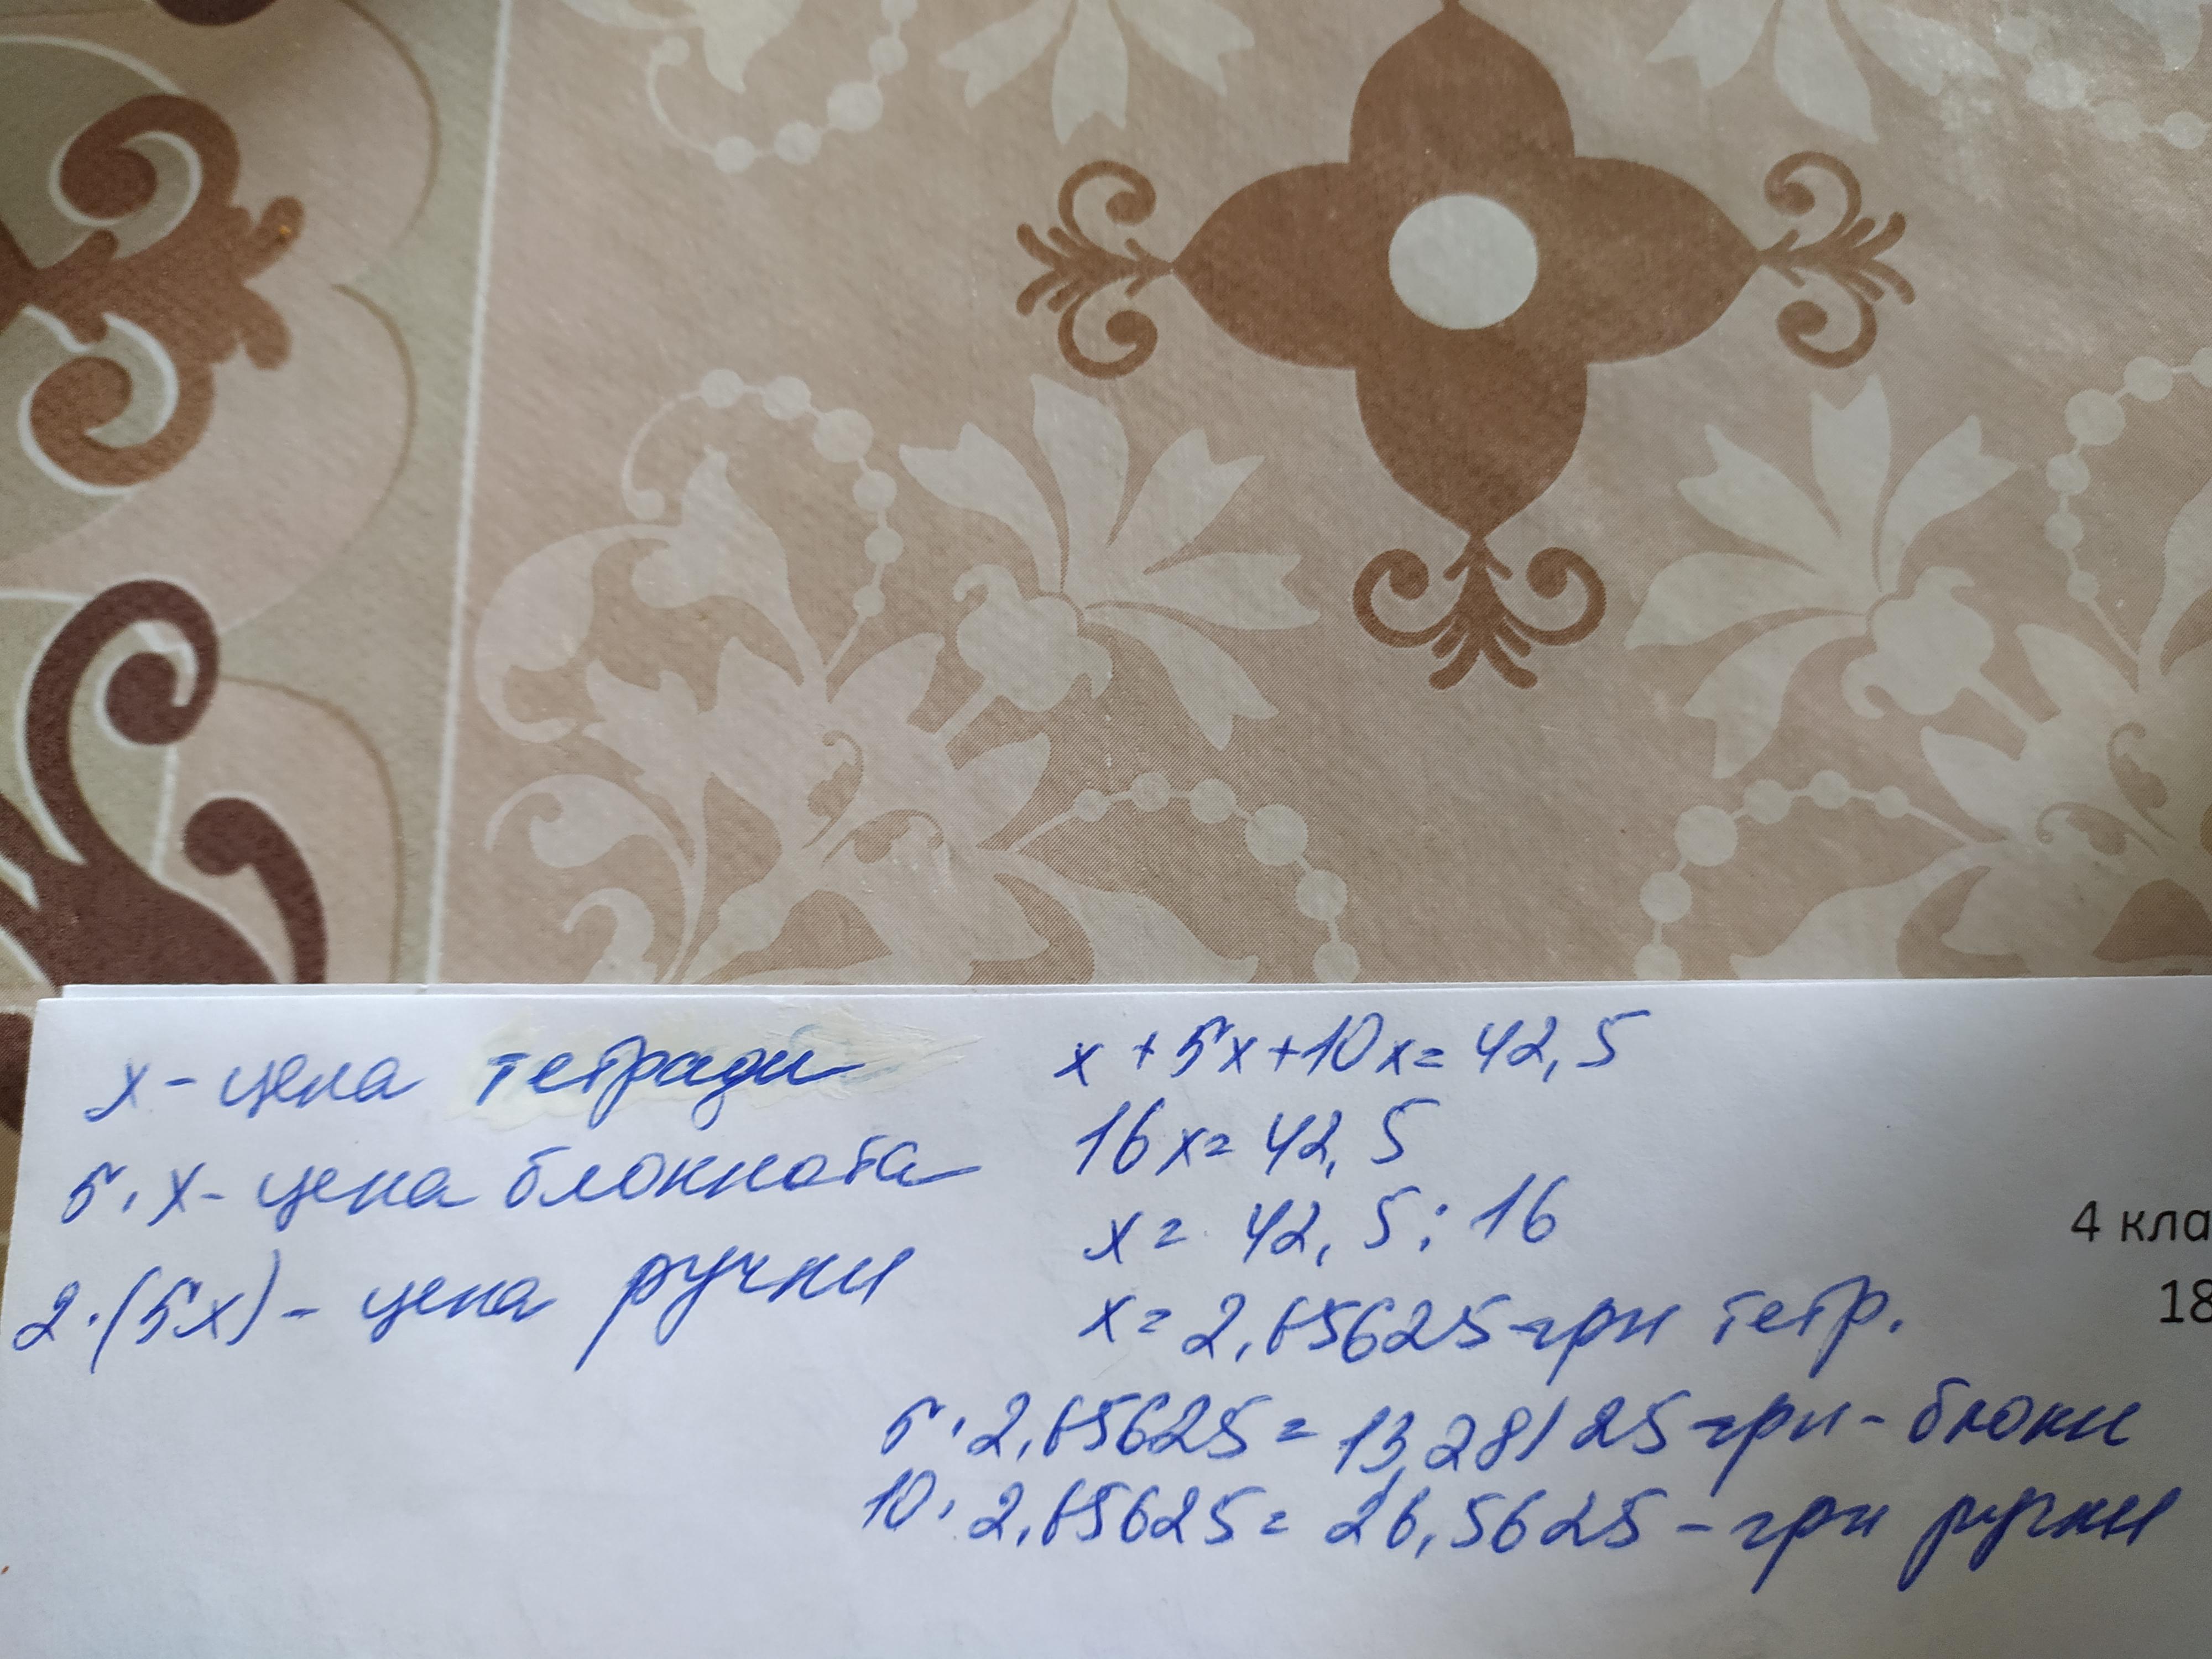 x - цена тетради
5 · x - цена блокнота
2 · (5x) - цена ручки
x + 5x + 10x = 42,5
16x = 42,5
x = 42,5 : 16
x = 2,65625 - грн тетр.
5 · 2,65625 = 13,28125 - грн - блокн
10 · 2,65625 = 26,5625 - грн ручки
4 кла
18